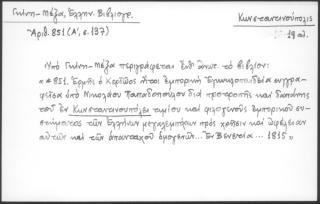 Γκίνη-Μέξα, Ελλην. Βιβλιογρ.
Κωνσταντινούπολις
Αριθ. 851 (Α', σ. 137)
19 αι.
Υπό Γκίνη-Μέξα περιγράφεται ένθ' ανωτ. το βιβλίον:
"*851. Ερμής ο Κερδώος ήτοι εμπορική Εγκυκλοπαιδεία συγγρα-
φείσα υπό Νικολάου Παπαδοπούλου διά προτροπής και δαπάνης
του εν Κωνσταντινουπόλει τιμίου και φιλογενούς εμπορικού συ-
στήματος των Ελλήνων μεγαλεμπόρων προς χρήσιν και ωφέλειαν
αυτών και των απανταχού ομογενών... Εν Βενετία... 1815"